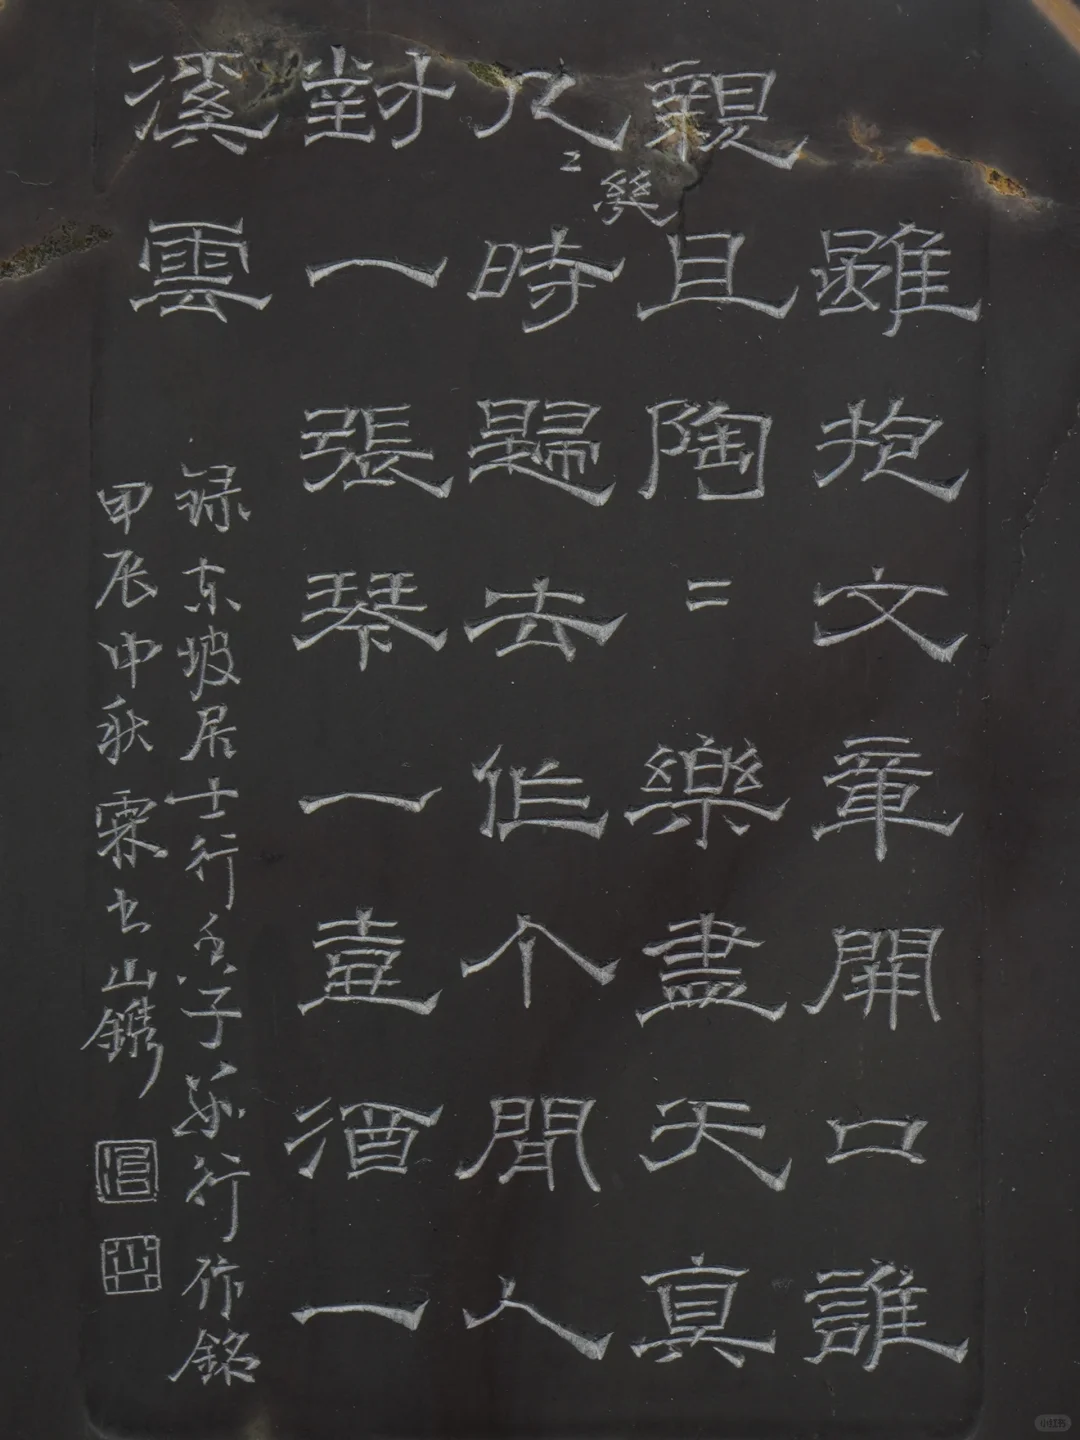 雖抱文章開口誰
親且陶=樂盡天真
几時歸去作个閒人
幾
對一張琴一壺酒一
溪雲
錄東坡居士行香子行作銘
甲辰中秋霖书山鐫